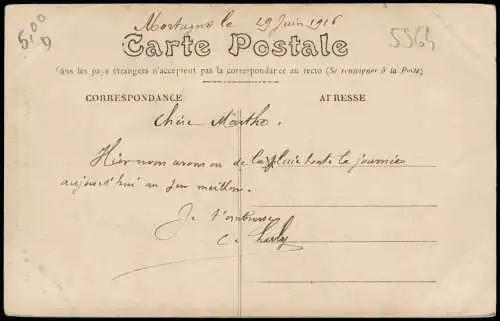 Mortagne le 29 Juin 1916
6,00
5364
Carte Postale
Tous les pays étrangers n'acceptent pas la correspondance au recto (Se renseigner à la Poste)
CORRESPONDANCE
ADRESSE
Chère Marthe.
Hier nous avons eu de la pluie toute la journée
aujourd'hui un peu meilleur.
Je t'embrasse